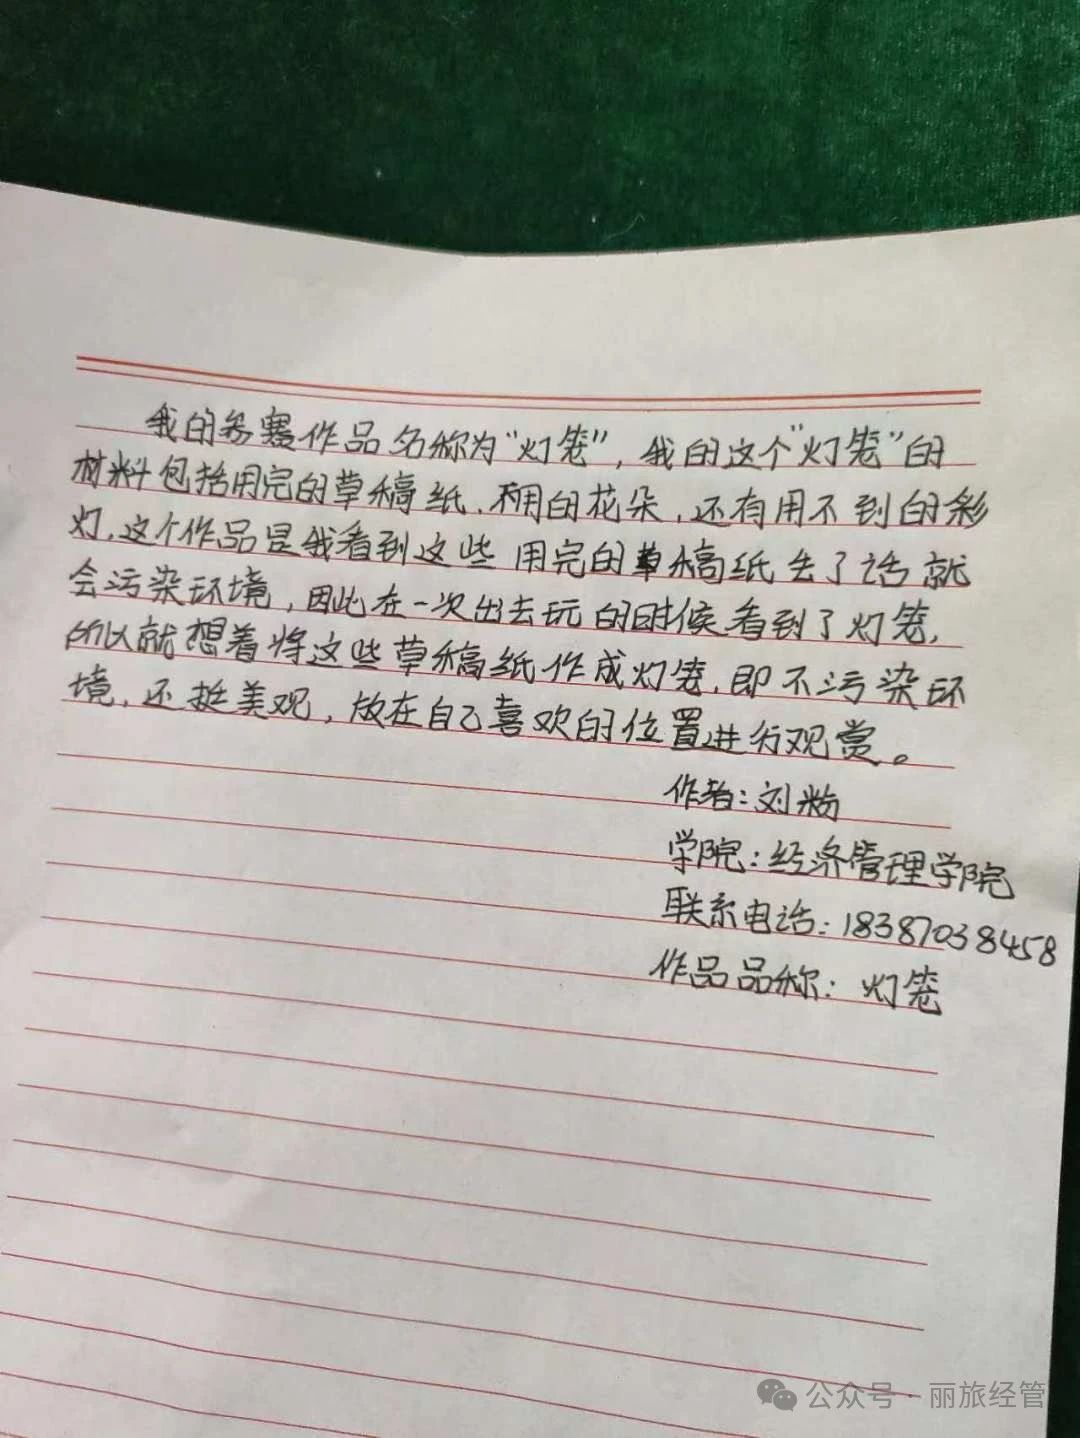 我的参赛作品名称为“灯笼”，我的这个“灯笼”的
材料包括用完的草稿纸、不用的花朵，还有用不到的彩
灯，这个作品是我看到这些用完的草稿纸丢了话就
会污染环境，因此在一次出去玩的时候看到了灯笼，
所以就想着将这些草稿纸作成灯笼，即不污染环
境，还挺美观，放在自己喜欢的位置进行观赏。
作者：刘粉
学院：经济管理学院
联系电话：18387038458
作品品称：灯笼
公众号·丽旅经管